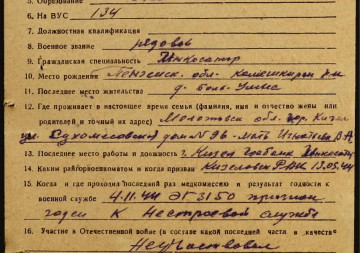 5. Образование
6. На ВУС 134
7. Должностная квалификация
8. Военное звание рядовой
9. Гражданская специальность Инкассатор
10. Место рождения Пензенск. обл. Камешкирск. р-н
11. Последнее место жительства д. Больш. Умыс
12. Где проживает в настоящее время семья (фамилия, имя и отчество жены или
родителей и точный их адрес) Молотовск. обл. гор. Кизел
ул. дом №96 – мать Игнатьева В.А.
13. Последнее место работы и должность г. Кизел Госбанк Инкассатор
14. Каким райгорвоенкоматом и когда призван Кизеловск. РВК 13.05.44
15. Когда и где проходил последний раз медкомиссию и результат годности к
военной службе 4.11.44 ЭГ 3150 признан
годен к нестроевой службе
16. Участие в Отечественной войне (в составе какой последней части и в качестве
Не участвовал